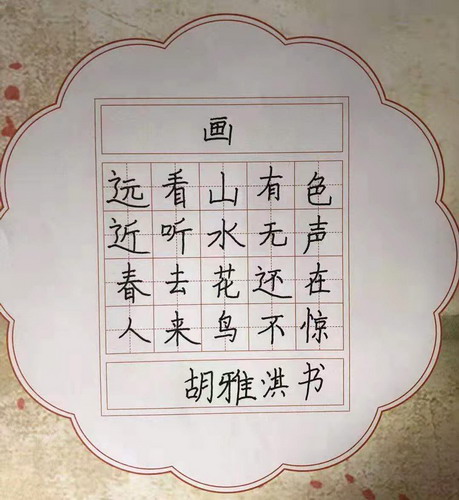 画
远看山有色
近听水无声
春去花还在
人来鸟不惊
胡雅淇书